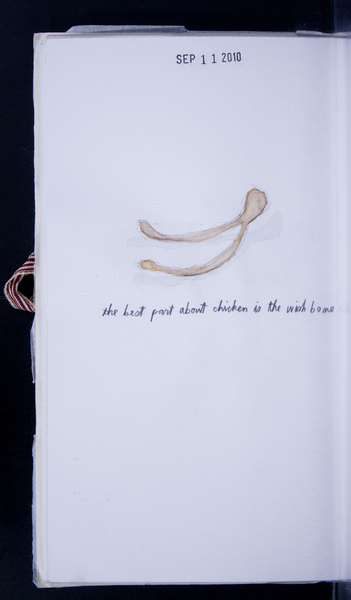 SEP 1 1 2010
the best part about chicken is the wish bone